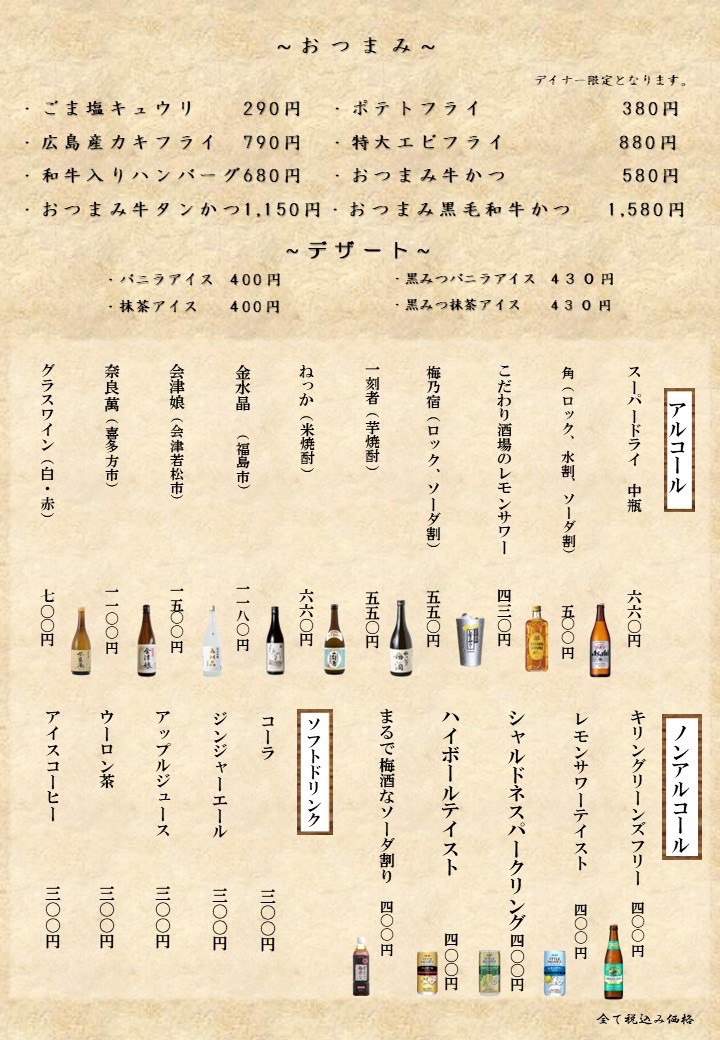 ～おつまみ～
デイナー限定となります。
・ごま塩キュウリ 290円
・ポテトフライ 380円
・広島産カキフライ 790円
・特大エビフライ 880円
・和牛入りハンバーグ680円
・おつまみ牛かつ 580円
・おつまみ牛タンかつ1,150円
・おつまみ黒毛和牛かつ 1,580円
～デザート～
・バニラアイス 400円
・黒みつバニラアイス ４３０円
・抹茶アイス 400円
・黒みつ抹茶アイス ４３０円
アルコール
スーパードライ 中瓶 六六〇円
角（ロック、水割、ソーダ割） 五〇〇円
こだわり酒場のレモンサワー 四三〇円
梅乃宿（ロック、ソーダ割） 五五〇円
一刻者（芋焼酎） 五五〇円
ねっか（米焼酎） 六六〇円
金水晶 （福島市） 一一八〇円
会津娘（会津若松市） 一五〇〇円
奈良萬（喜多方市） 一一〇〇円
グラスワイン（白・赤） 七〇〇円
ノンアルコール
キリングリーンズフリー 四〇〇円
レモンサワーテイスト 四〇〇円
シャルドネスパークリング 四〇〇円
ハイボールテイスト 四〇〇円
まるで梅酒なソーダ割り 四〇〇円
ソフトドリンク
コーラ 三〇〇円
ジンジャーエール 三〇〇円
アップルジュース 三〇〇円
ウーロン茶 三〇〇円
アイスコーヒー 三〇〇円
全て税込み価格